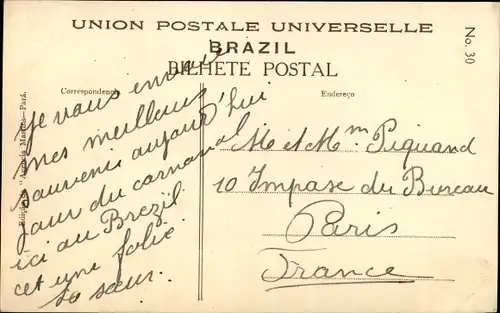 UNION POSTALE UNIVERSELLE
BRAZIL
BILHETE POSTAL
No. 30
Correspondencia
Endereço
je vous envoie
mes meilleurs
souvenir aujourd'hui
jour du carnaval
ici au Brezil
cet une folie
sœur.
M et Mm Piquand
10 Impase du Bureau
Paris
France
"Agencia Martins"—Pará.